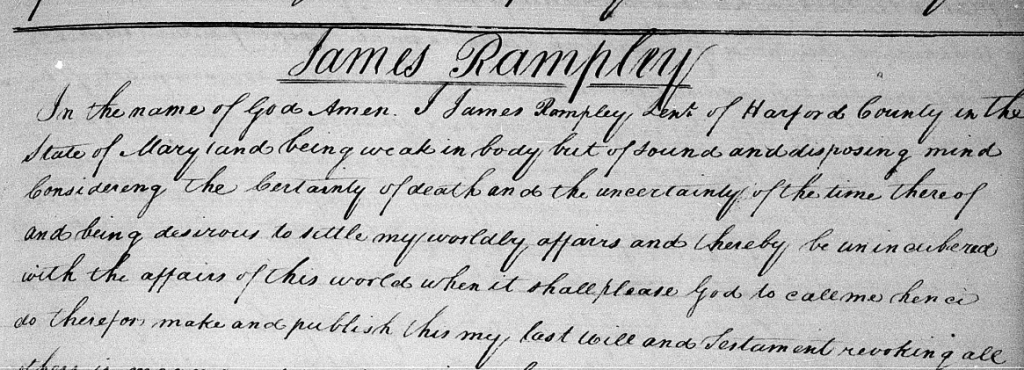 James Rampley
In the name of God Amen. I James Rampley, Senr. of Harford County in the
State of Maryland being weak in body but of sound and disposing mind
Considereng the Certainty of death and the uncertainty of the time thereof
and being desirous to settle my worldly affairs and thereby be unincubered
with the affairs of this world when it shall please God to call me hence
do therefor make and publish this my last Will and Testament revoking all